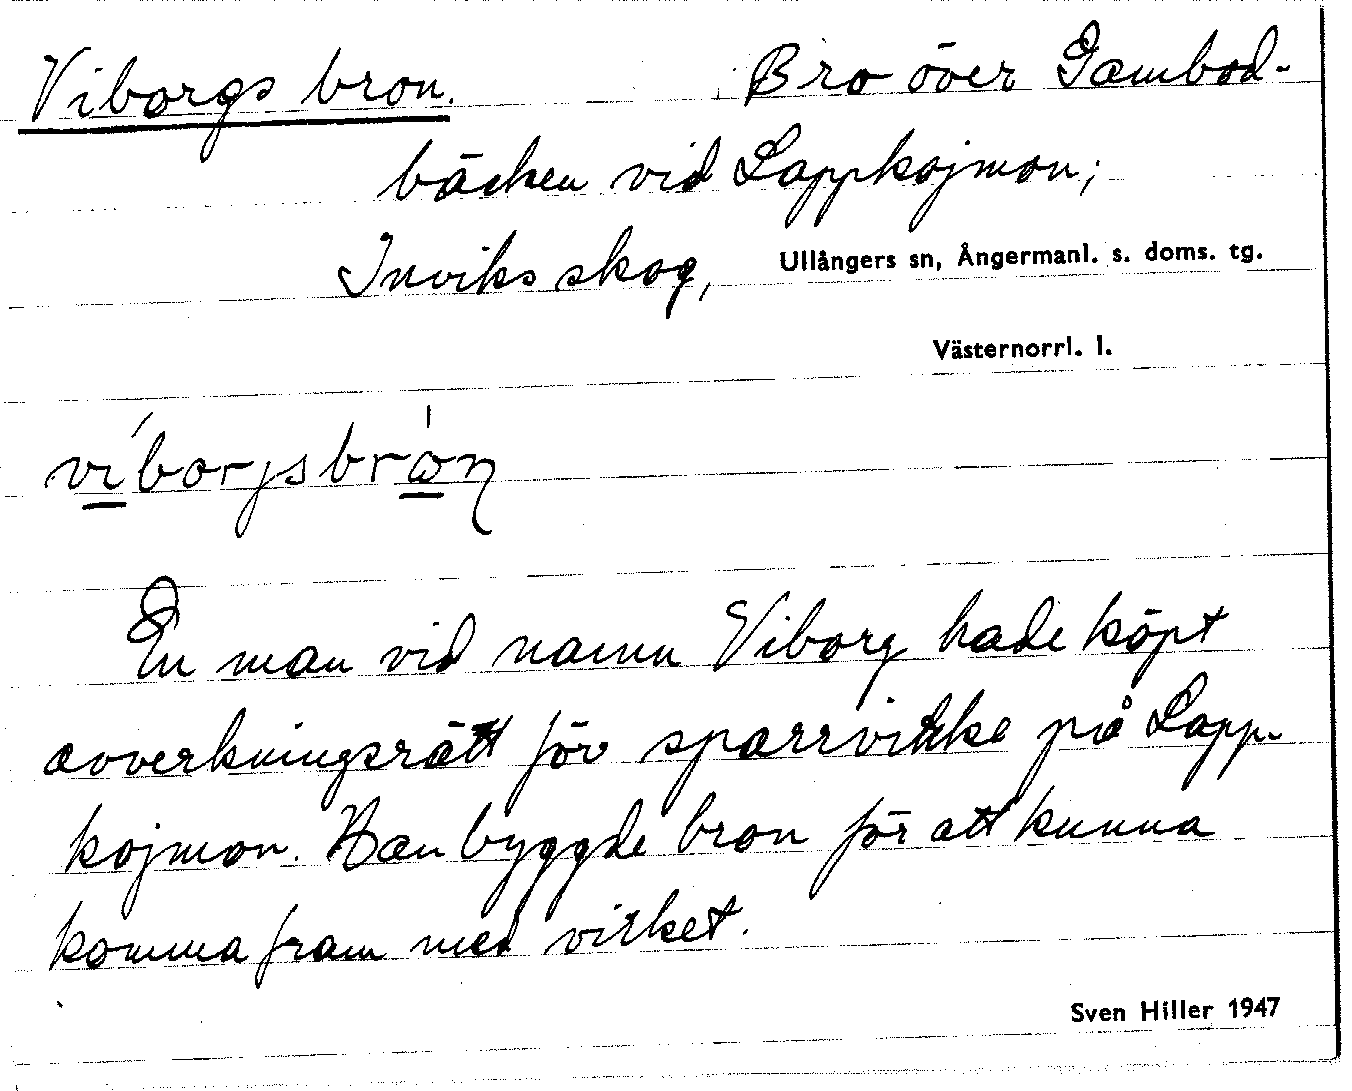 Viborgs bron. Bro över Gambod-
bäcken vid Lappkojmon;
Inviks skog, Ullångers sn, Ångermanl. s. doms. tg.
Västernorrl. l.
víborjsbròn
En man vid namn Viborg hade köpt
avverkningsrätt för sparrvirke på Lapp-
kojmon. Han byggde bron för att kunna
komma fram med virket.
Sven Hiller 1947